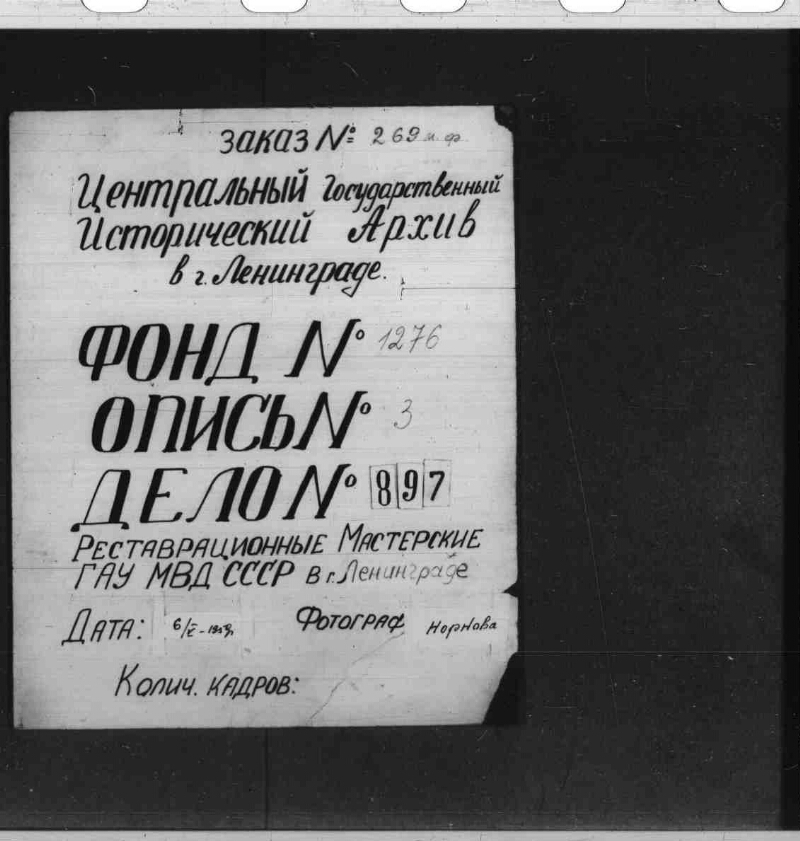 заказ № 269 м.ф.
Центральный Государственный
Исторический Архив
в г. Ленинграде.
ФОНД № 1276
ОПИСЬ № 3
ДЕЛО № 897
РЕСТАВРАЦИОННЫЕ МАСТЕРСКИЕ
ГАУ МВД СССР в г. Ленинграде
ДАТА: ФОТОГРАФ Норнова
Колич. кадров: